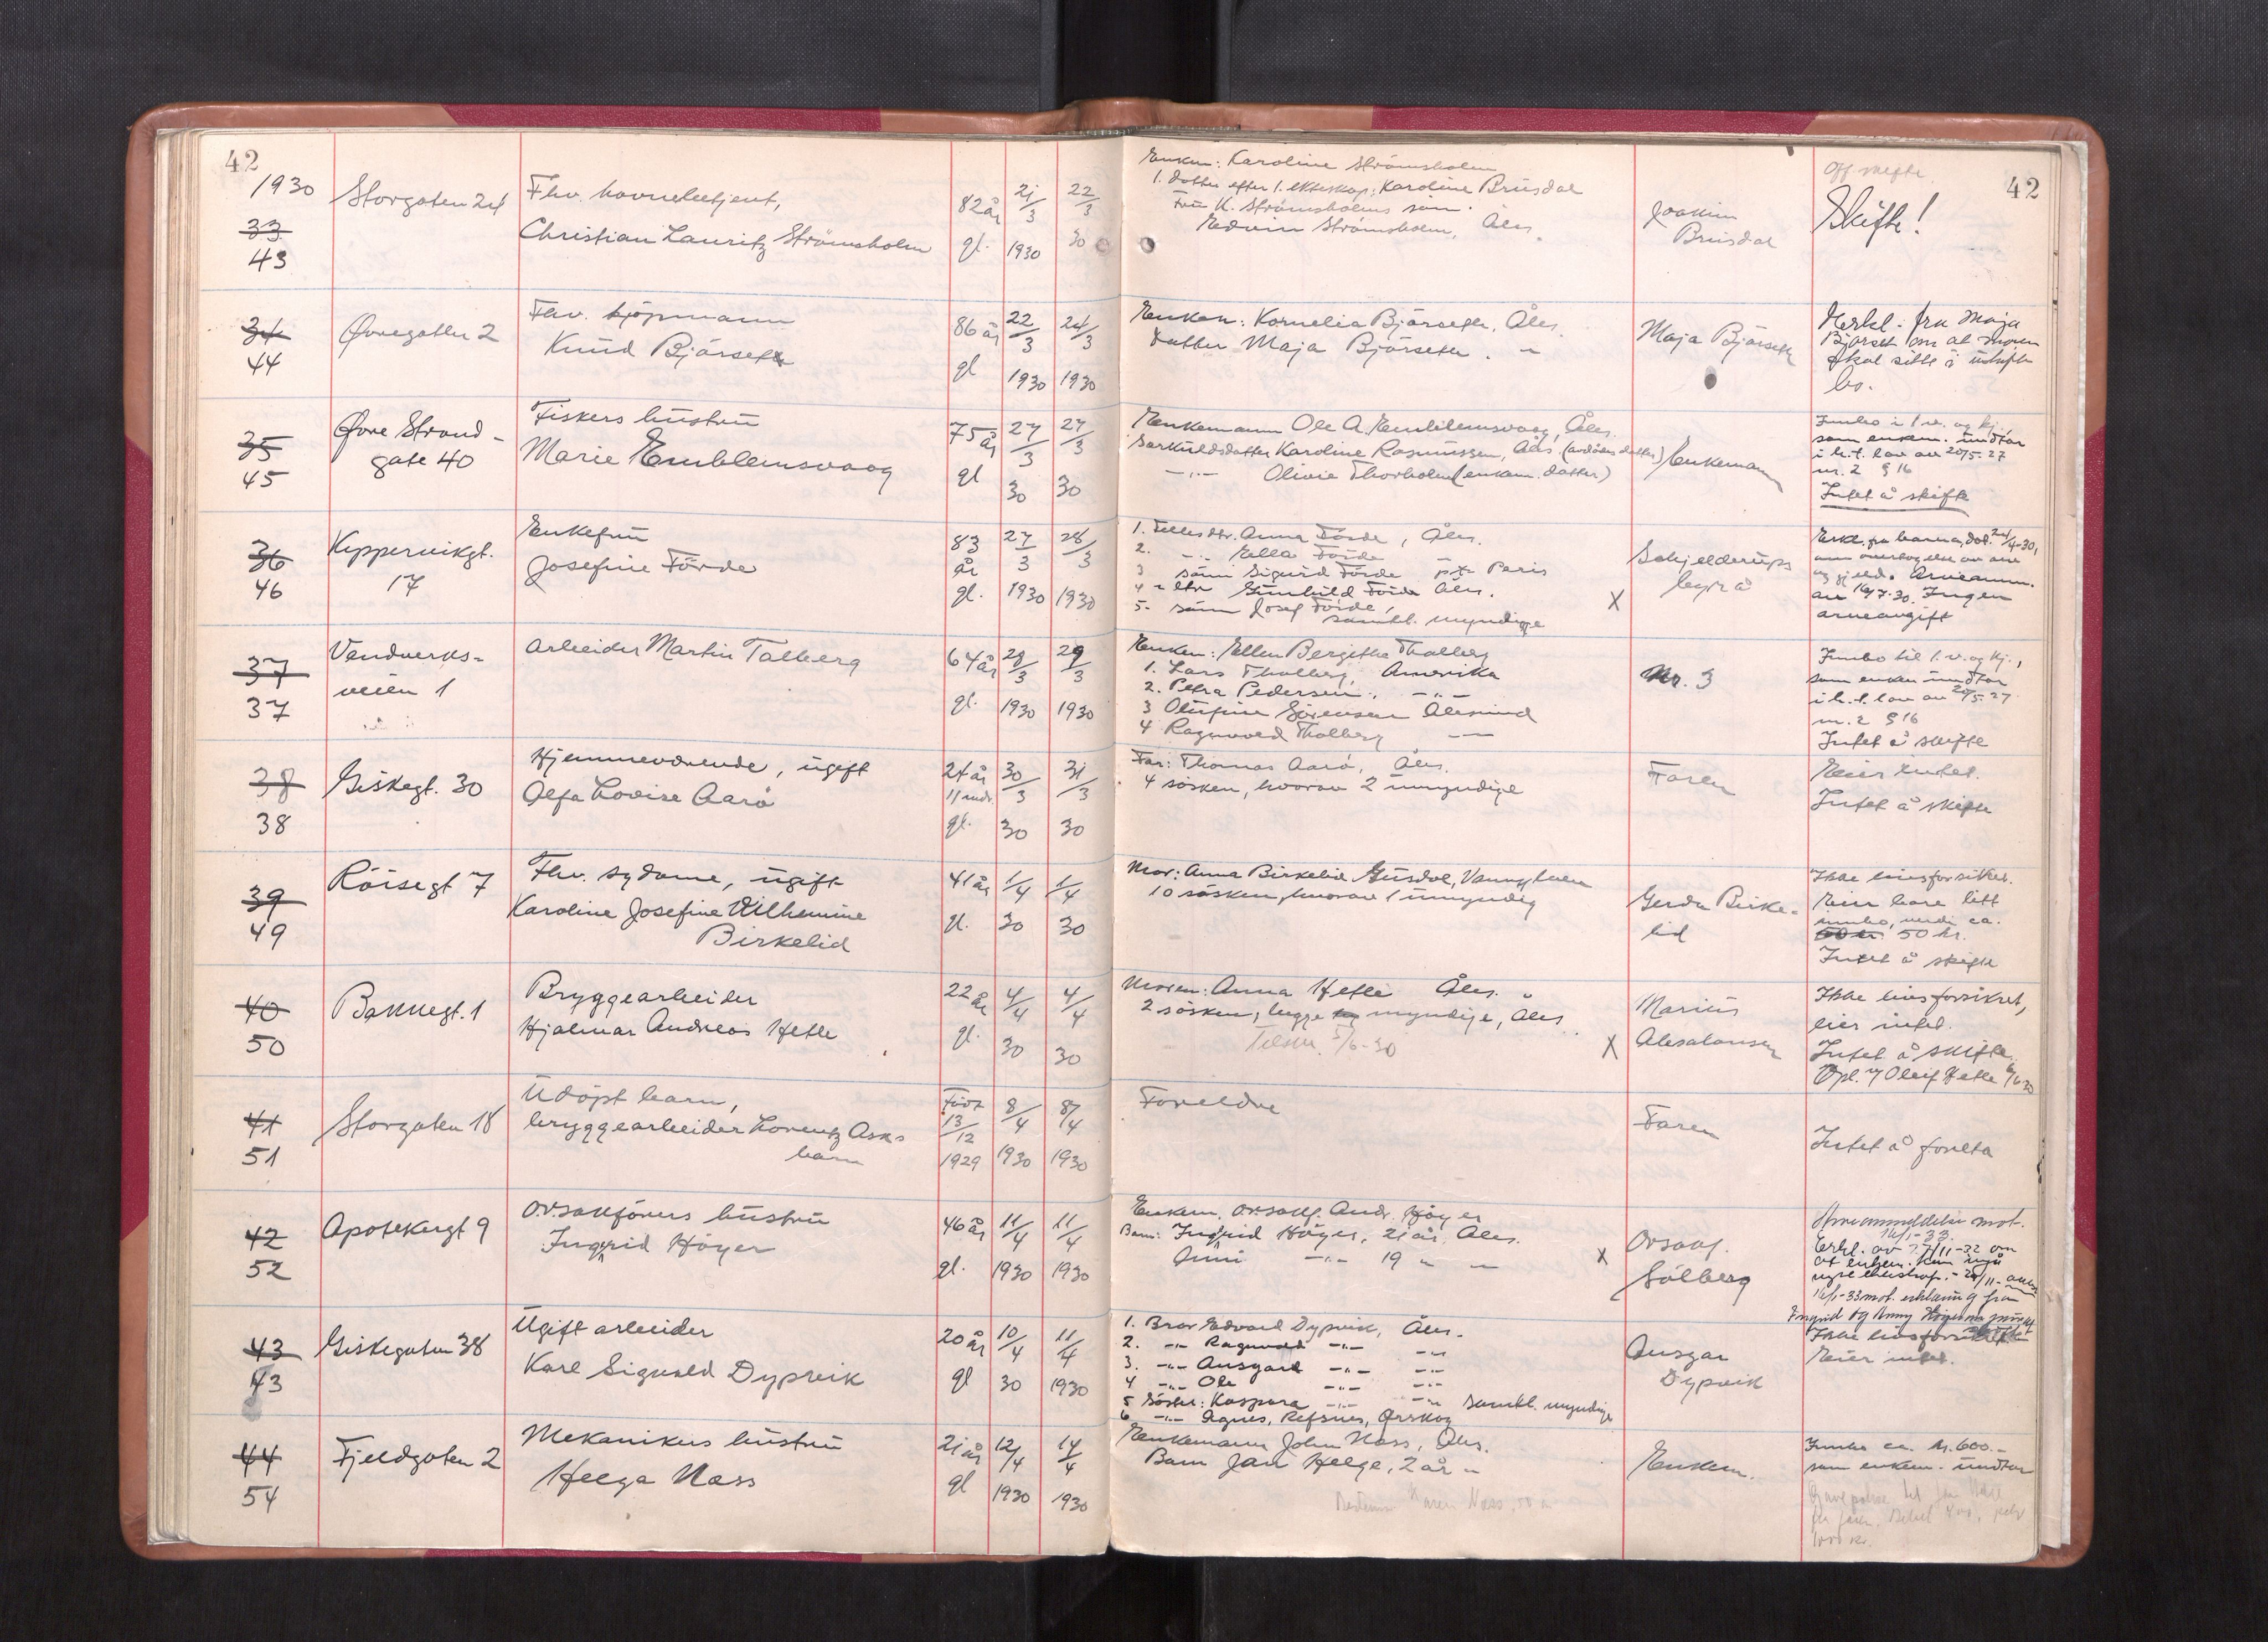 42
1930
33
43
Storgaten 24
Fhv. havnebetjent,
Christian Lauritz Strömsholm
82 år
gl.
21/3
1930
22/3
30
Enken: Karoline Strömsholm
1. datter efter 1. ekteskap: Karoline Brusdal
Fru K. Strömsholms sön:
Edvin Strömsholm, Åles.
Joakim
Brusdal
Off skifte
42
Skifte!
34
44
Övregaten 2
Fhv. kjöpmann
Knud Bjørseth
86 år
gl
22/3
1930
24/3
1930
Enken: Kornelia Bjørseth, Åles.
Datter Maja Bjørseth. "
Maja Bjørseth
Erkl. fra Maja
Bjørset om at moren
skal sitte i uskiftet
bo.
35
45
Øvre Strand-
gate 40
Fiskers hustru
Marie Emblemsvaag
75 år
gl
27/3
30
27/3
30
Enkemann Ole A. Emblemsvaag, Åles.
Særkuldsdatter Karoline Rasmussen, Åls (avdødes datter)
-"- Olivie Thorholm (enkem. datter)
Enkemann
Innbo i l.v. og kj.,
som enkem. undtar
i h.t. lov av 20/5-27
nr. 2 § 16
Intet å skifte
36
46
Kipperviksgt.
17
Enkefru
Josefine Förde
83
år
gl.
27/3
1930
28/3
1930
1. Fellesdtr. Anna Förde, Åles.
2. -"- Ella Förde "
3 sönn Sigurd Förde Paris
4 " dtr Gunhild Förde Åles.
5. sönn Josef Förde,
samtl. myndige
X
Schjelderups
byrå
Erkl. fra barna, dat. 24/4-30,
om overtagelse av arv
og gjeld. Arveanm.
av 16/7-30. Ingen
arveavgift
37
37
Vandverks-
veien 1
Arbeider Martin Talberg
64 år
gl.
28/3
1930
29/3
1930
Enken: Ellen Bergitha Thalberg
1. Lars Thalberg, Amerika
2. Petra Pedersen, -"-
3 Olufine Sörensen Ålesund
4 Ragnvald Thalberg -"-
Nr. 3
Innbo til l.v. og kj.,
som enken undtar
i h.t. lov av 20/5-27
nr. 2 § 16
Intet å skifte
38
38
Giskegt. 30
Hjemmeværende, ugift
Alfa Lovise Aarö
24 år
11 mdr.
gl.
30/3
30
31/3
30
Far: Thomas Aarö, Åles.
4 sösken, hvorav 2 umyndige
Faren
Eier intet.
Intet å skifte
39
49
Röisegt 7
Fhv. sydame, ugift
Karoline Josefine Vilhelmine
Birkelid
41 år
gl.
1/4
30
1/4
30
Mor: Anna Birkelid Gusdal,
10 sösken, hvorav 1 umyndig
Gerda Birke-
lid
Ikke livsforsikret.
Eier bare litt
innbo, verdi ca.
50 kr.
Intet å skifte
40
50
Bakkegt. 1
Bryggearbeider
Hjalmar Andreas Hetle
22 år
gl.
4/4
30
4/4
30
Moren: Anna Hetle Åles.
2 sösken, begge myndige, Åles
Tilskr. 5/6-30
X
Marius
Alesalansen
Ikke livsforsikret,
eier intet.
Intet å skifte.
Opl. v/ Oluf Hetle 6/6 30
41
51
Storgaten 18
Udöpt barn,
bryggearbeider Lorentz Asks
barn
Födt
13/12
1929
8/4
1930
8/4
1930
Foreldre
Faren
Intet å foreta
42
52
Apotekergt 9
O.r.sakförers hustru
Ingrid Höyer
46 år
gl.
11/4
1930
11/4
1930
Enkem. o.r.sakf. Andr. Höyer
Barn: Ingrid Höyer, 21 år, Åles.
Anni -"- 19 " "
X
O.r.sakf.
Solberg
Arvemeddelelse mot.
16/1-33.
Erkl. av 27/11-32 om
at enkem. kan inngå
nytt ekteskap. -
16/1-33 mot. erklæring fra
Ingrid og Anny Höyer om privat
skifte
43
43
Giskegaten 38
Ugift arbeider
Karl Sigvald Dypvik
20 år
gl
10/4
30
11/4
1930
1. Bror Edvard Dypvik, Åles.
2. -"- Ragnvald -"- -"-
3. -"- Ansgard -"- -"-
4 -"- Ole -"- -"-
5 Söster: Kaspara -"- -"- samtl. myndige
6 -"- Agnes, Refsnes, Ørskog
Ansgar
Dypvik
Ikke livsforsikret
Eier intet.
44
54
Fjeldgaten 2
Mekanikers hustru
Helga Nass
21 år
gl
12/4
1930
14/4
1930
Enkemann John Nass, Åles.
Barn Jan Helge, 2 år "
Karen Nass,
Enkem.
Innbo ca. kr. 600.-
som enkem. undtar